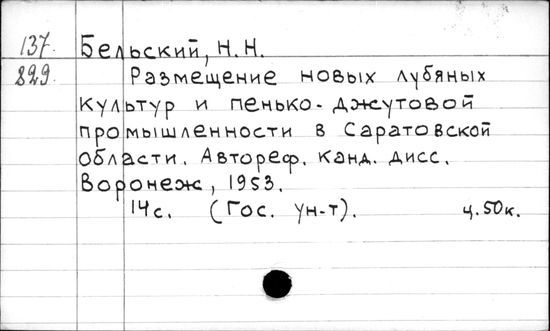 137 Бельский, Н.Н.
829 Размещение новых лубяных
культур и пенько-джутовой
промышленности в Саратовской
области. Автореф. канд. дисс.
Воронеж, 1953.
14с. (Гос. ун-т). ц.50к.